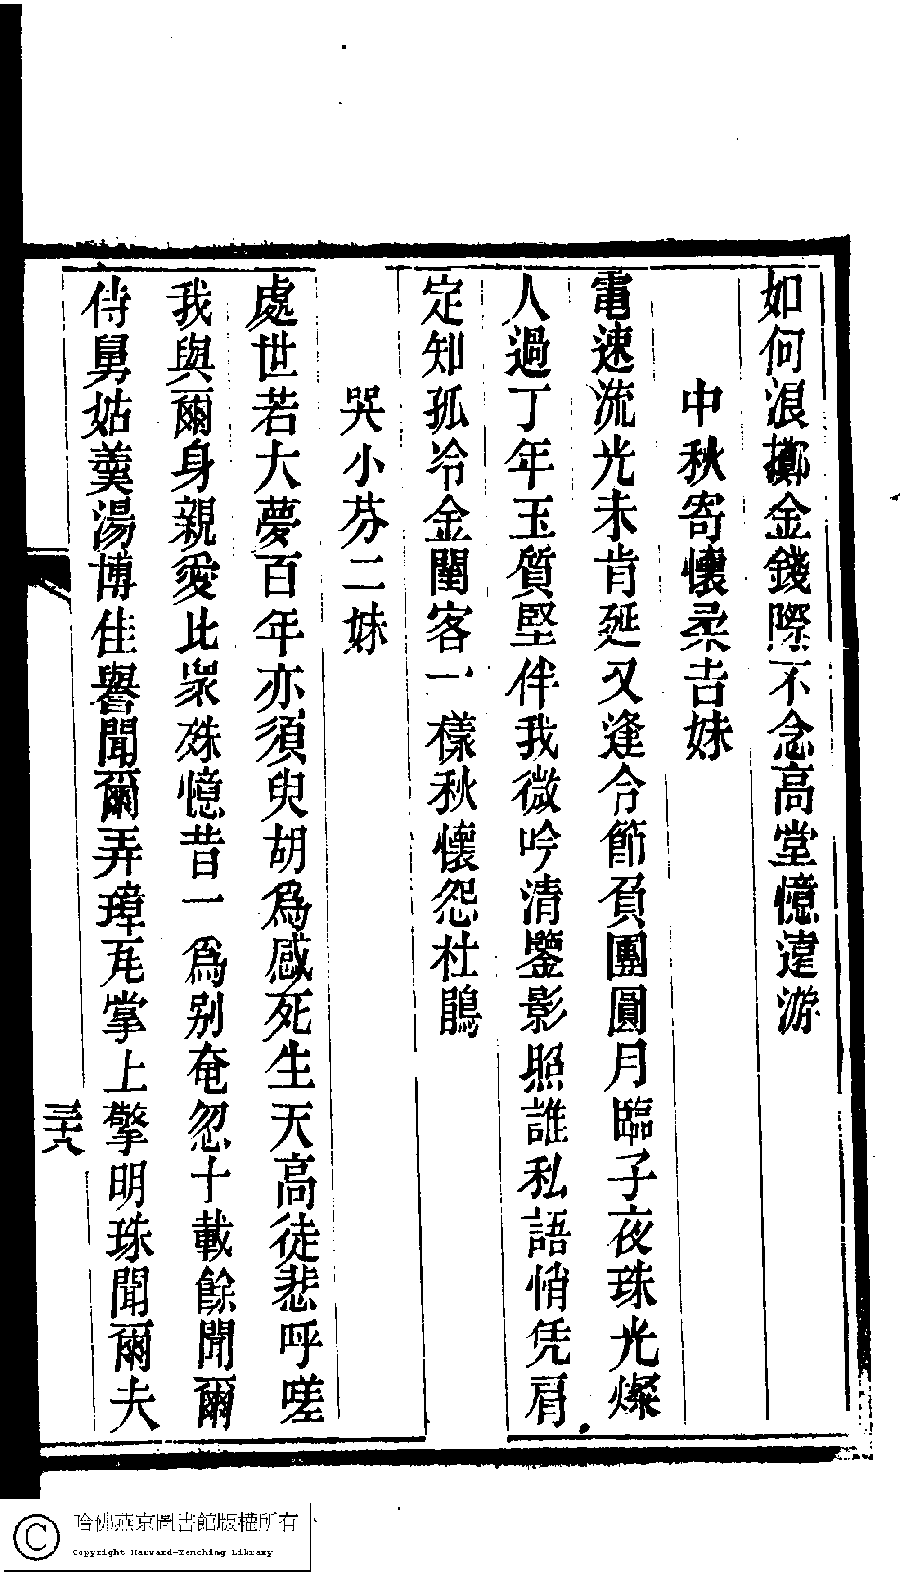 如何浪擲金錢際不念高堂憶遠游
中秋寄懷柔吉妹
電速流光未肯延又逢令節負團圓月臨子夜珠光燦
人過丁年玉質堅伴我微吟清鑒影照誰私語悄凭肩
定知孤冷金閨客一樣秋懷怨杜鵑
哭小芬二妹
處世若大夢百年亦須臾胡爲感死生天高徒悲呼嗟
我與爾身親愛比眾殊憶昔一爲别奄忽十載餘聞爾
侍舅姑羹湯博佳譽聞爾弄璋瓦掌上擎明珠聞爾夫
三十八
哈佛燕京圖書館版權所有
Copyright Harvard-Yenching Library